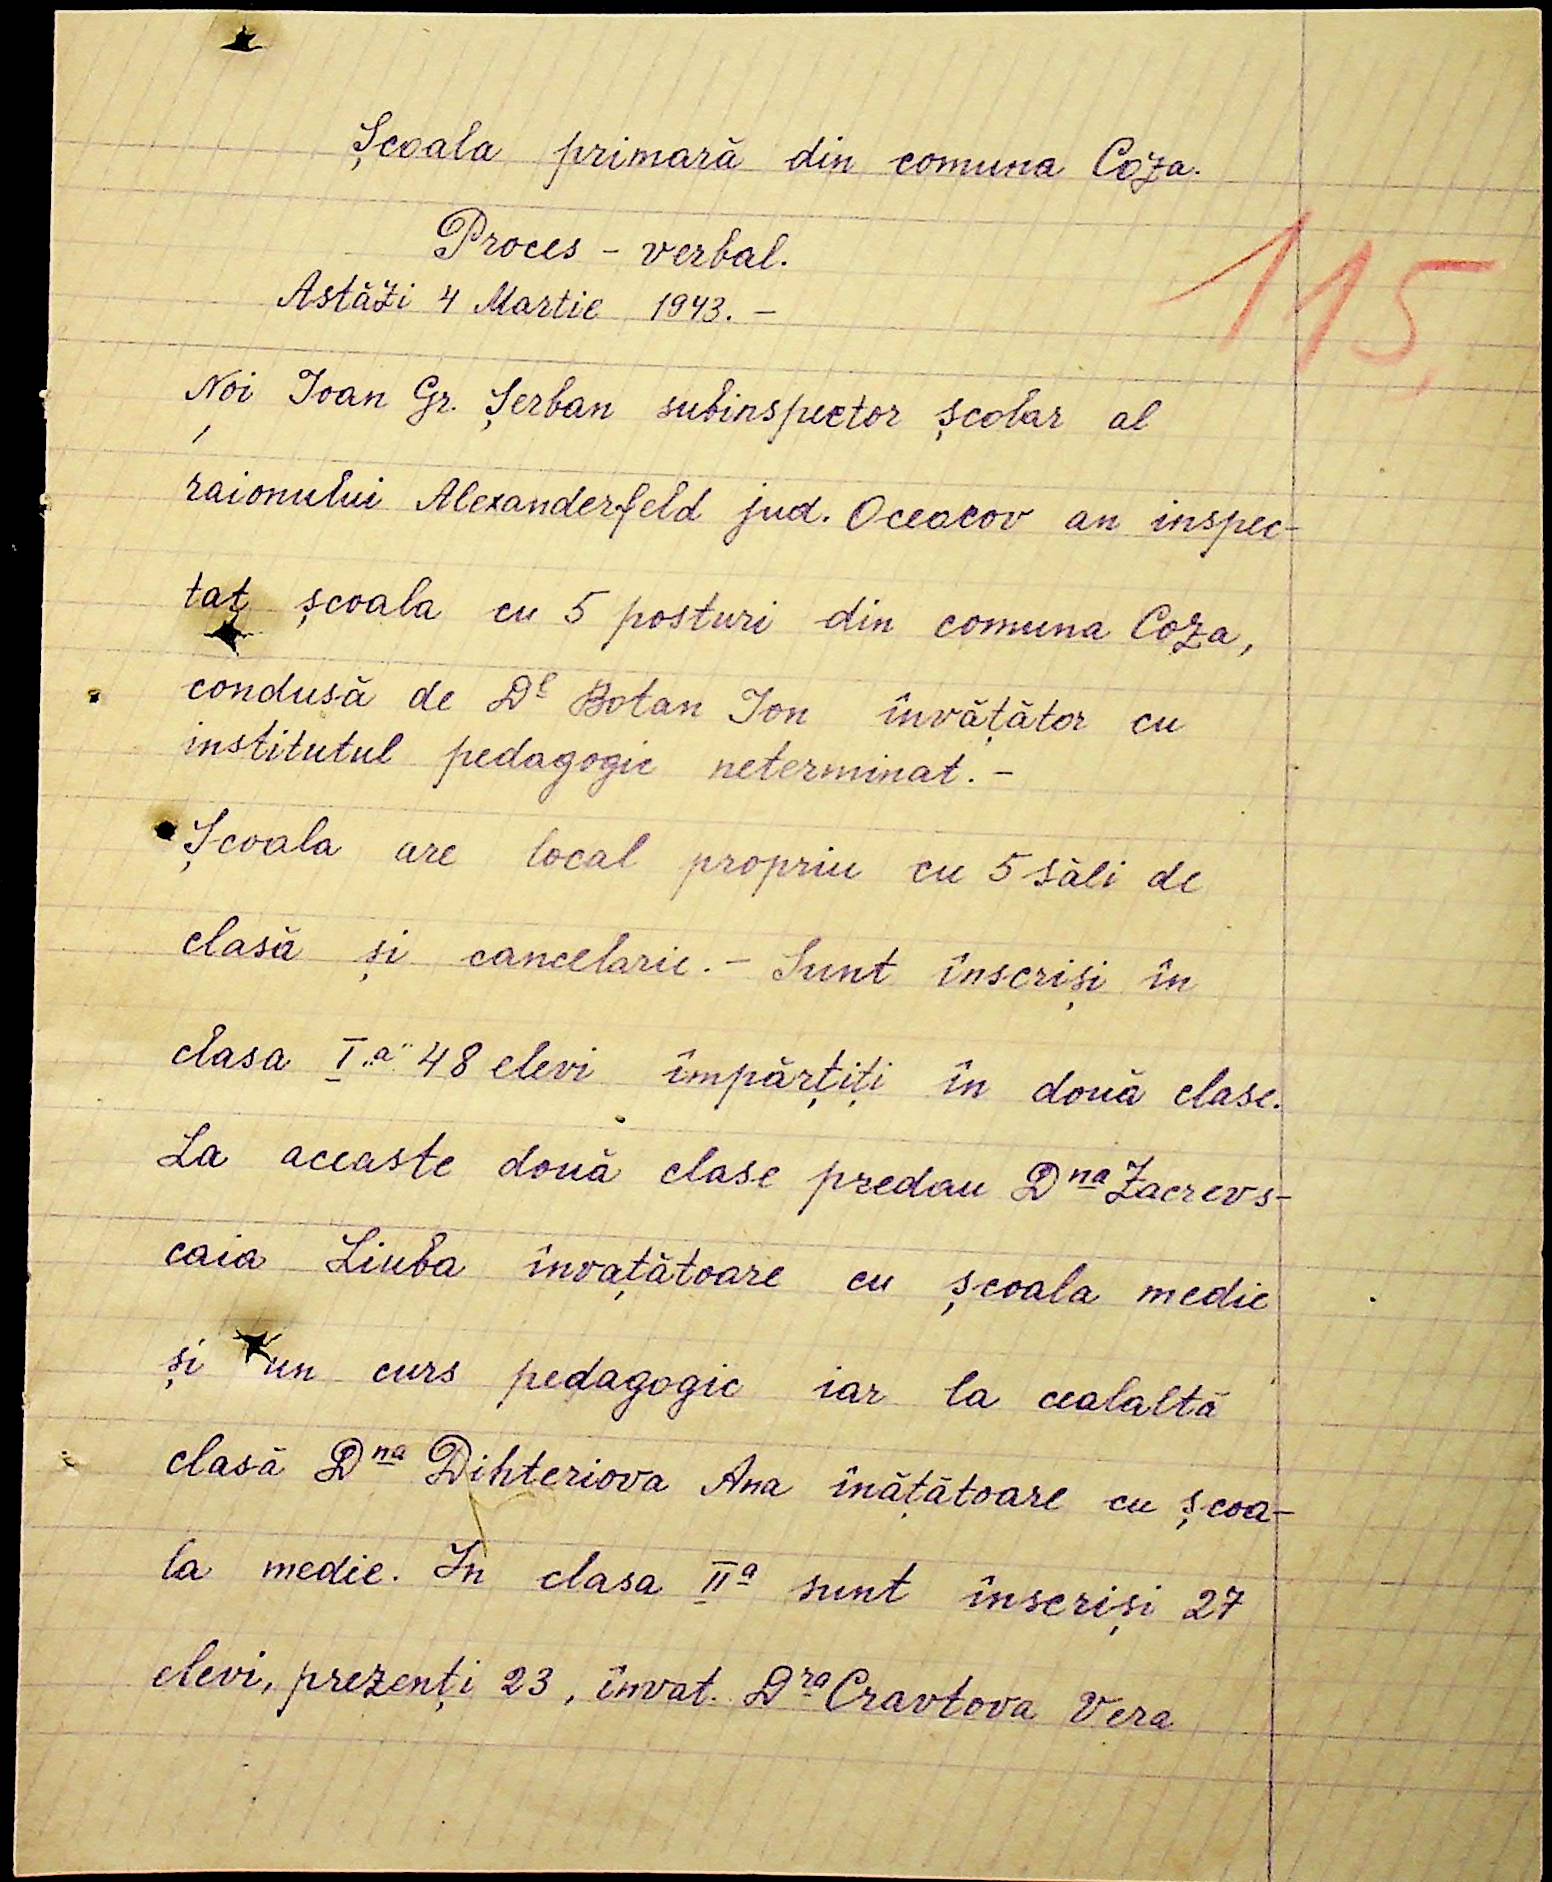 Școala primară din comuna Coza.
Proces - verbal.
115.
Astăzi 4 Martie 1943. -
Noi Ioan Gr. Șerban subinspector școlar al
raionului Alexanderfeld jud. Oceacov an inspec-
tat școala cu 5 posturi din comuna Coza,
condusă de Dl Botan Ion învățător cu
institutul pedagogic neterminat. -
Școala are local propriu cu 5 săli de
clasă și cancelarie. - Sunt înscriși în
clasa I "a" 48 elevi împărțiți în două clase.
La aceaste două clase predau Dna Zacrevs-
caia Liuba învațătoare cu școala medie
și un curs pedagogic iar la cealaltă
clasă Dna Dihteriova Ana înățătoare cu școa-
la medie. In clasa IIa sunt înscriși 27
elevi, prezenți 23, învat. Dra Cravtova Vera